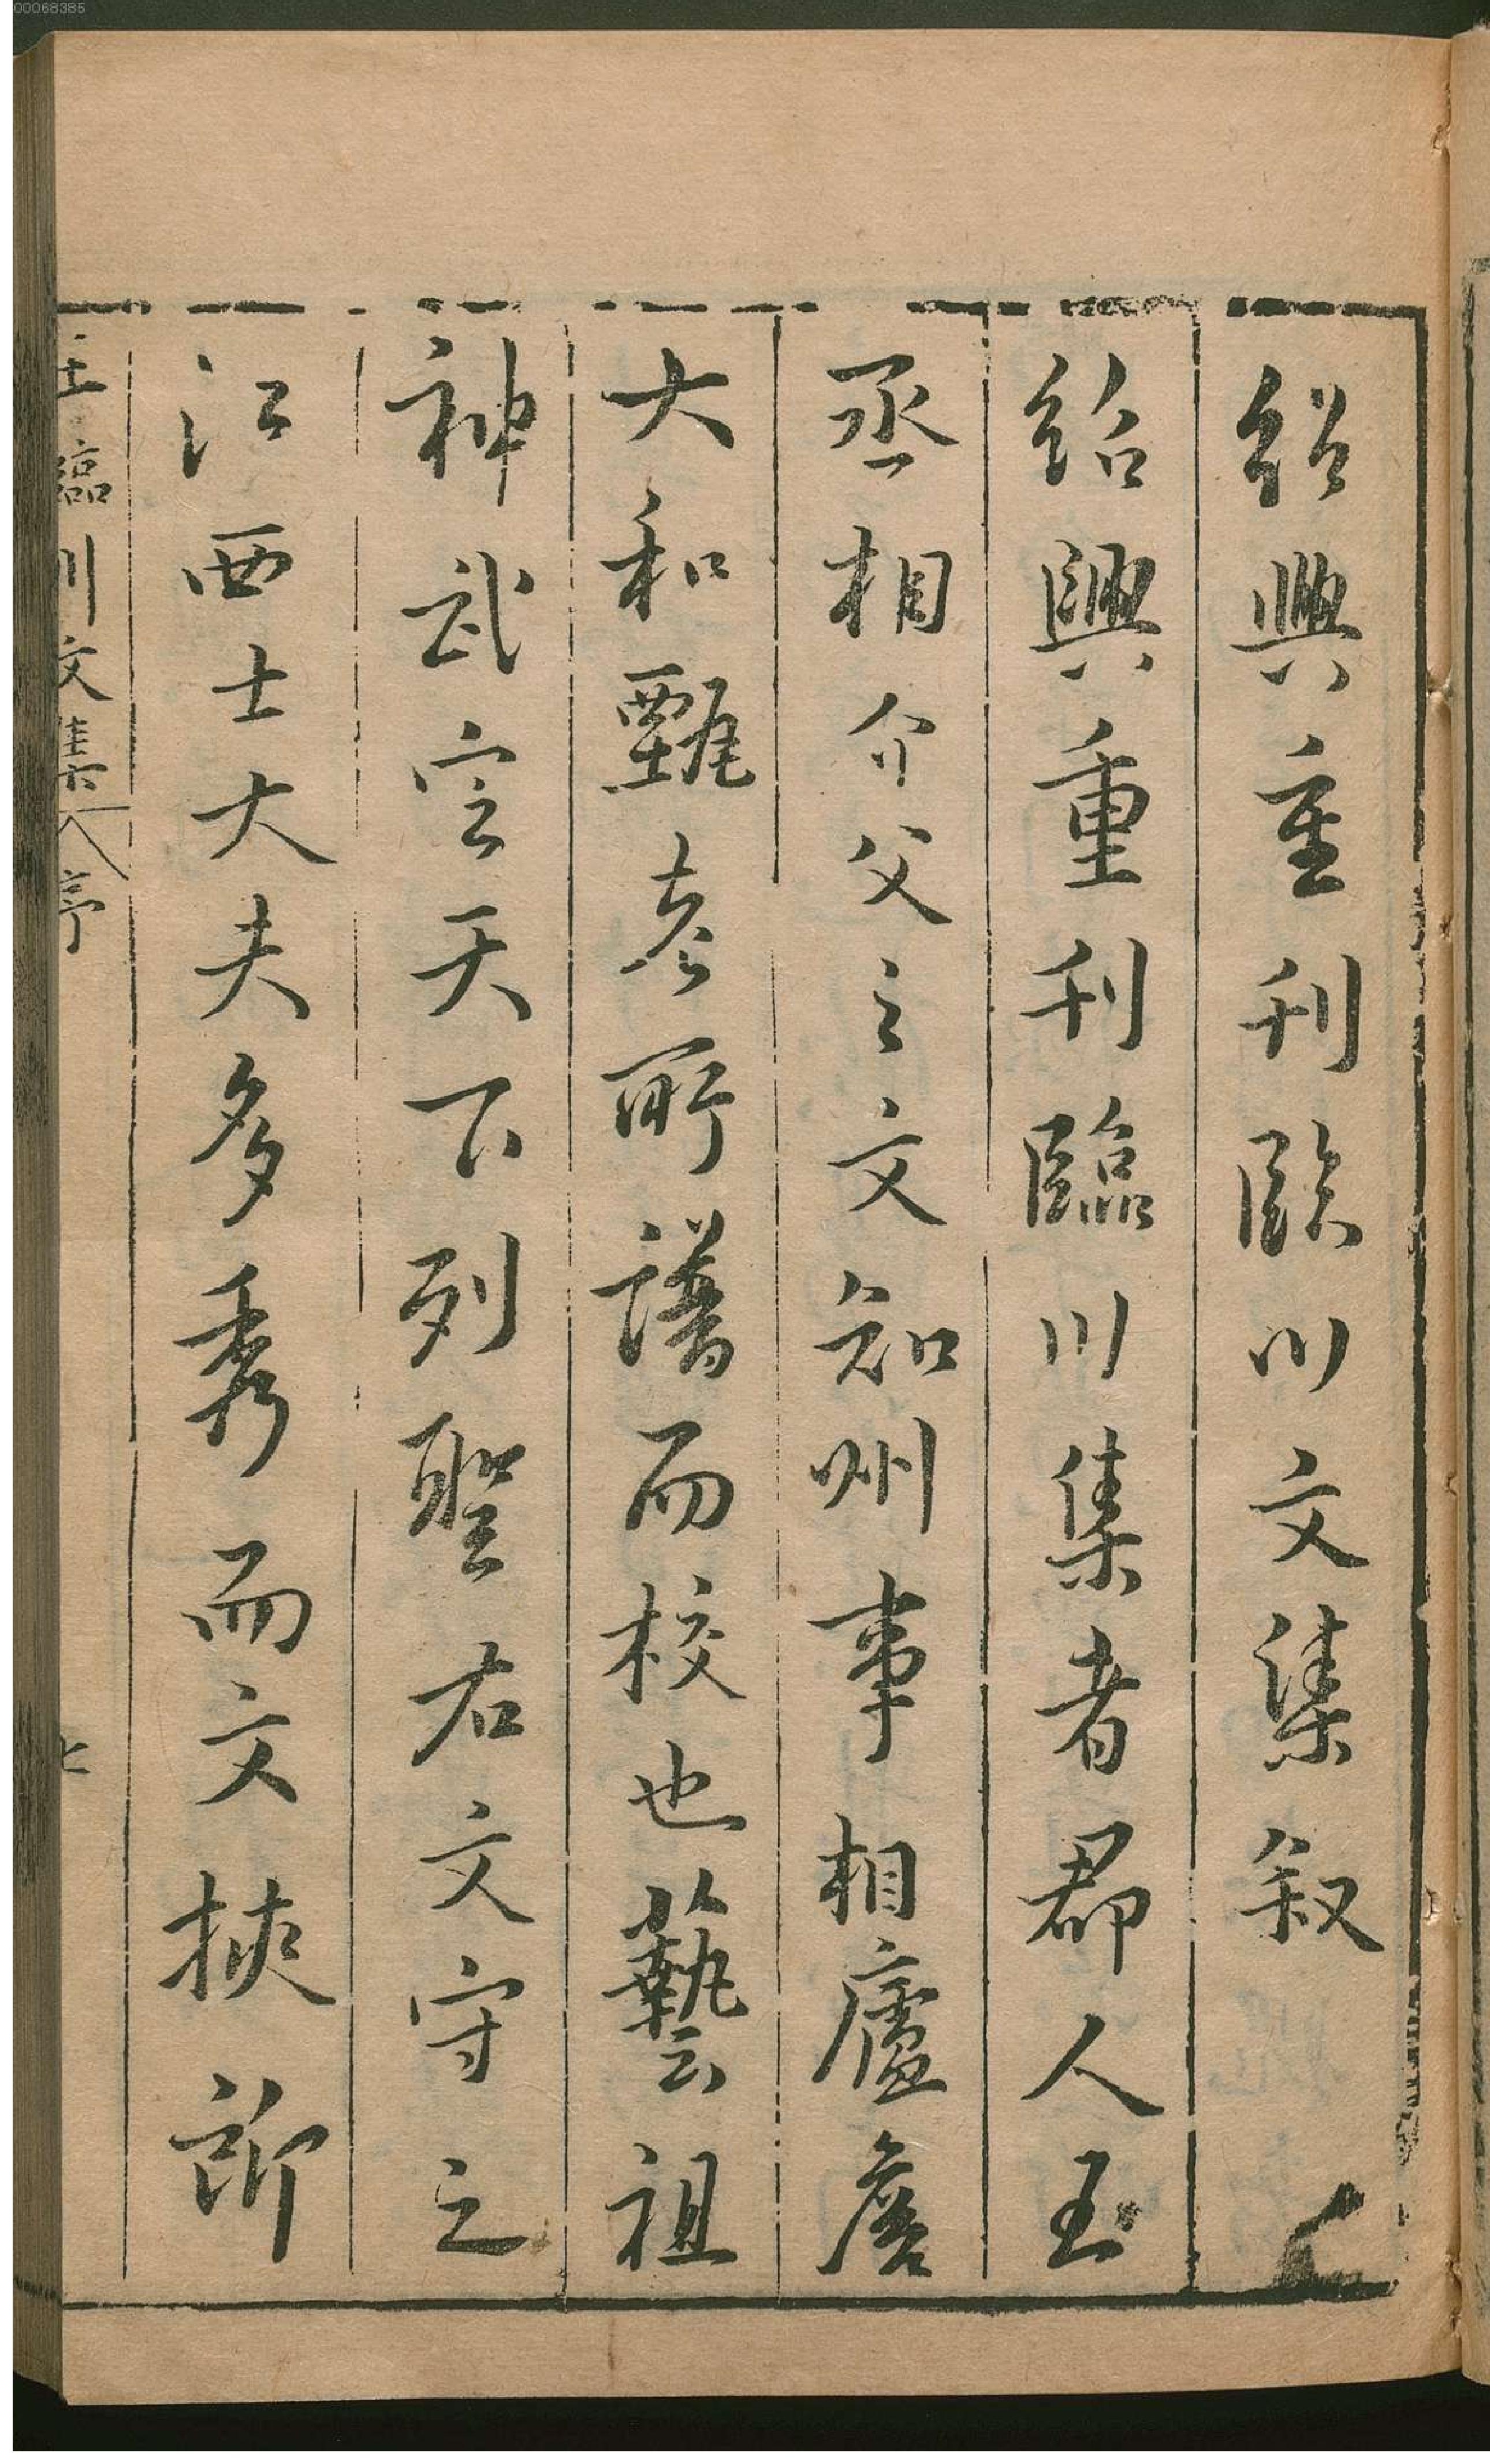 00068385
紹興重刊臨川文集叙
紹興重刊臨川集者郡人王
丞相介父之文知州事相廬詹
大和甄老所譜而校也藝祖
神武定天下列聖右文守之
江西士大夫多秀而文挾所
王臨川文集 序